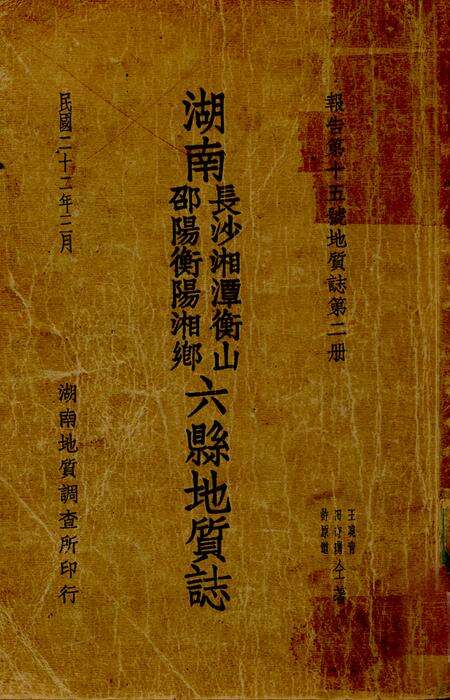 報告第十五號地質誌第二册
湖南
長沙湘潭衡山
邵陽衡陽湘鄉
六縣地質誌
仝著
民國二十二年三月
湖南地質調查所印行